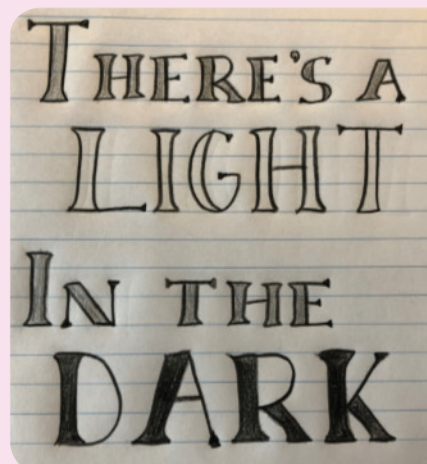 THERE'S A
LIGHT
IN THE
DARK